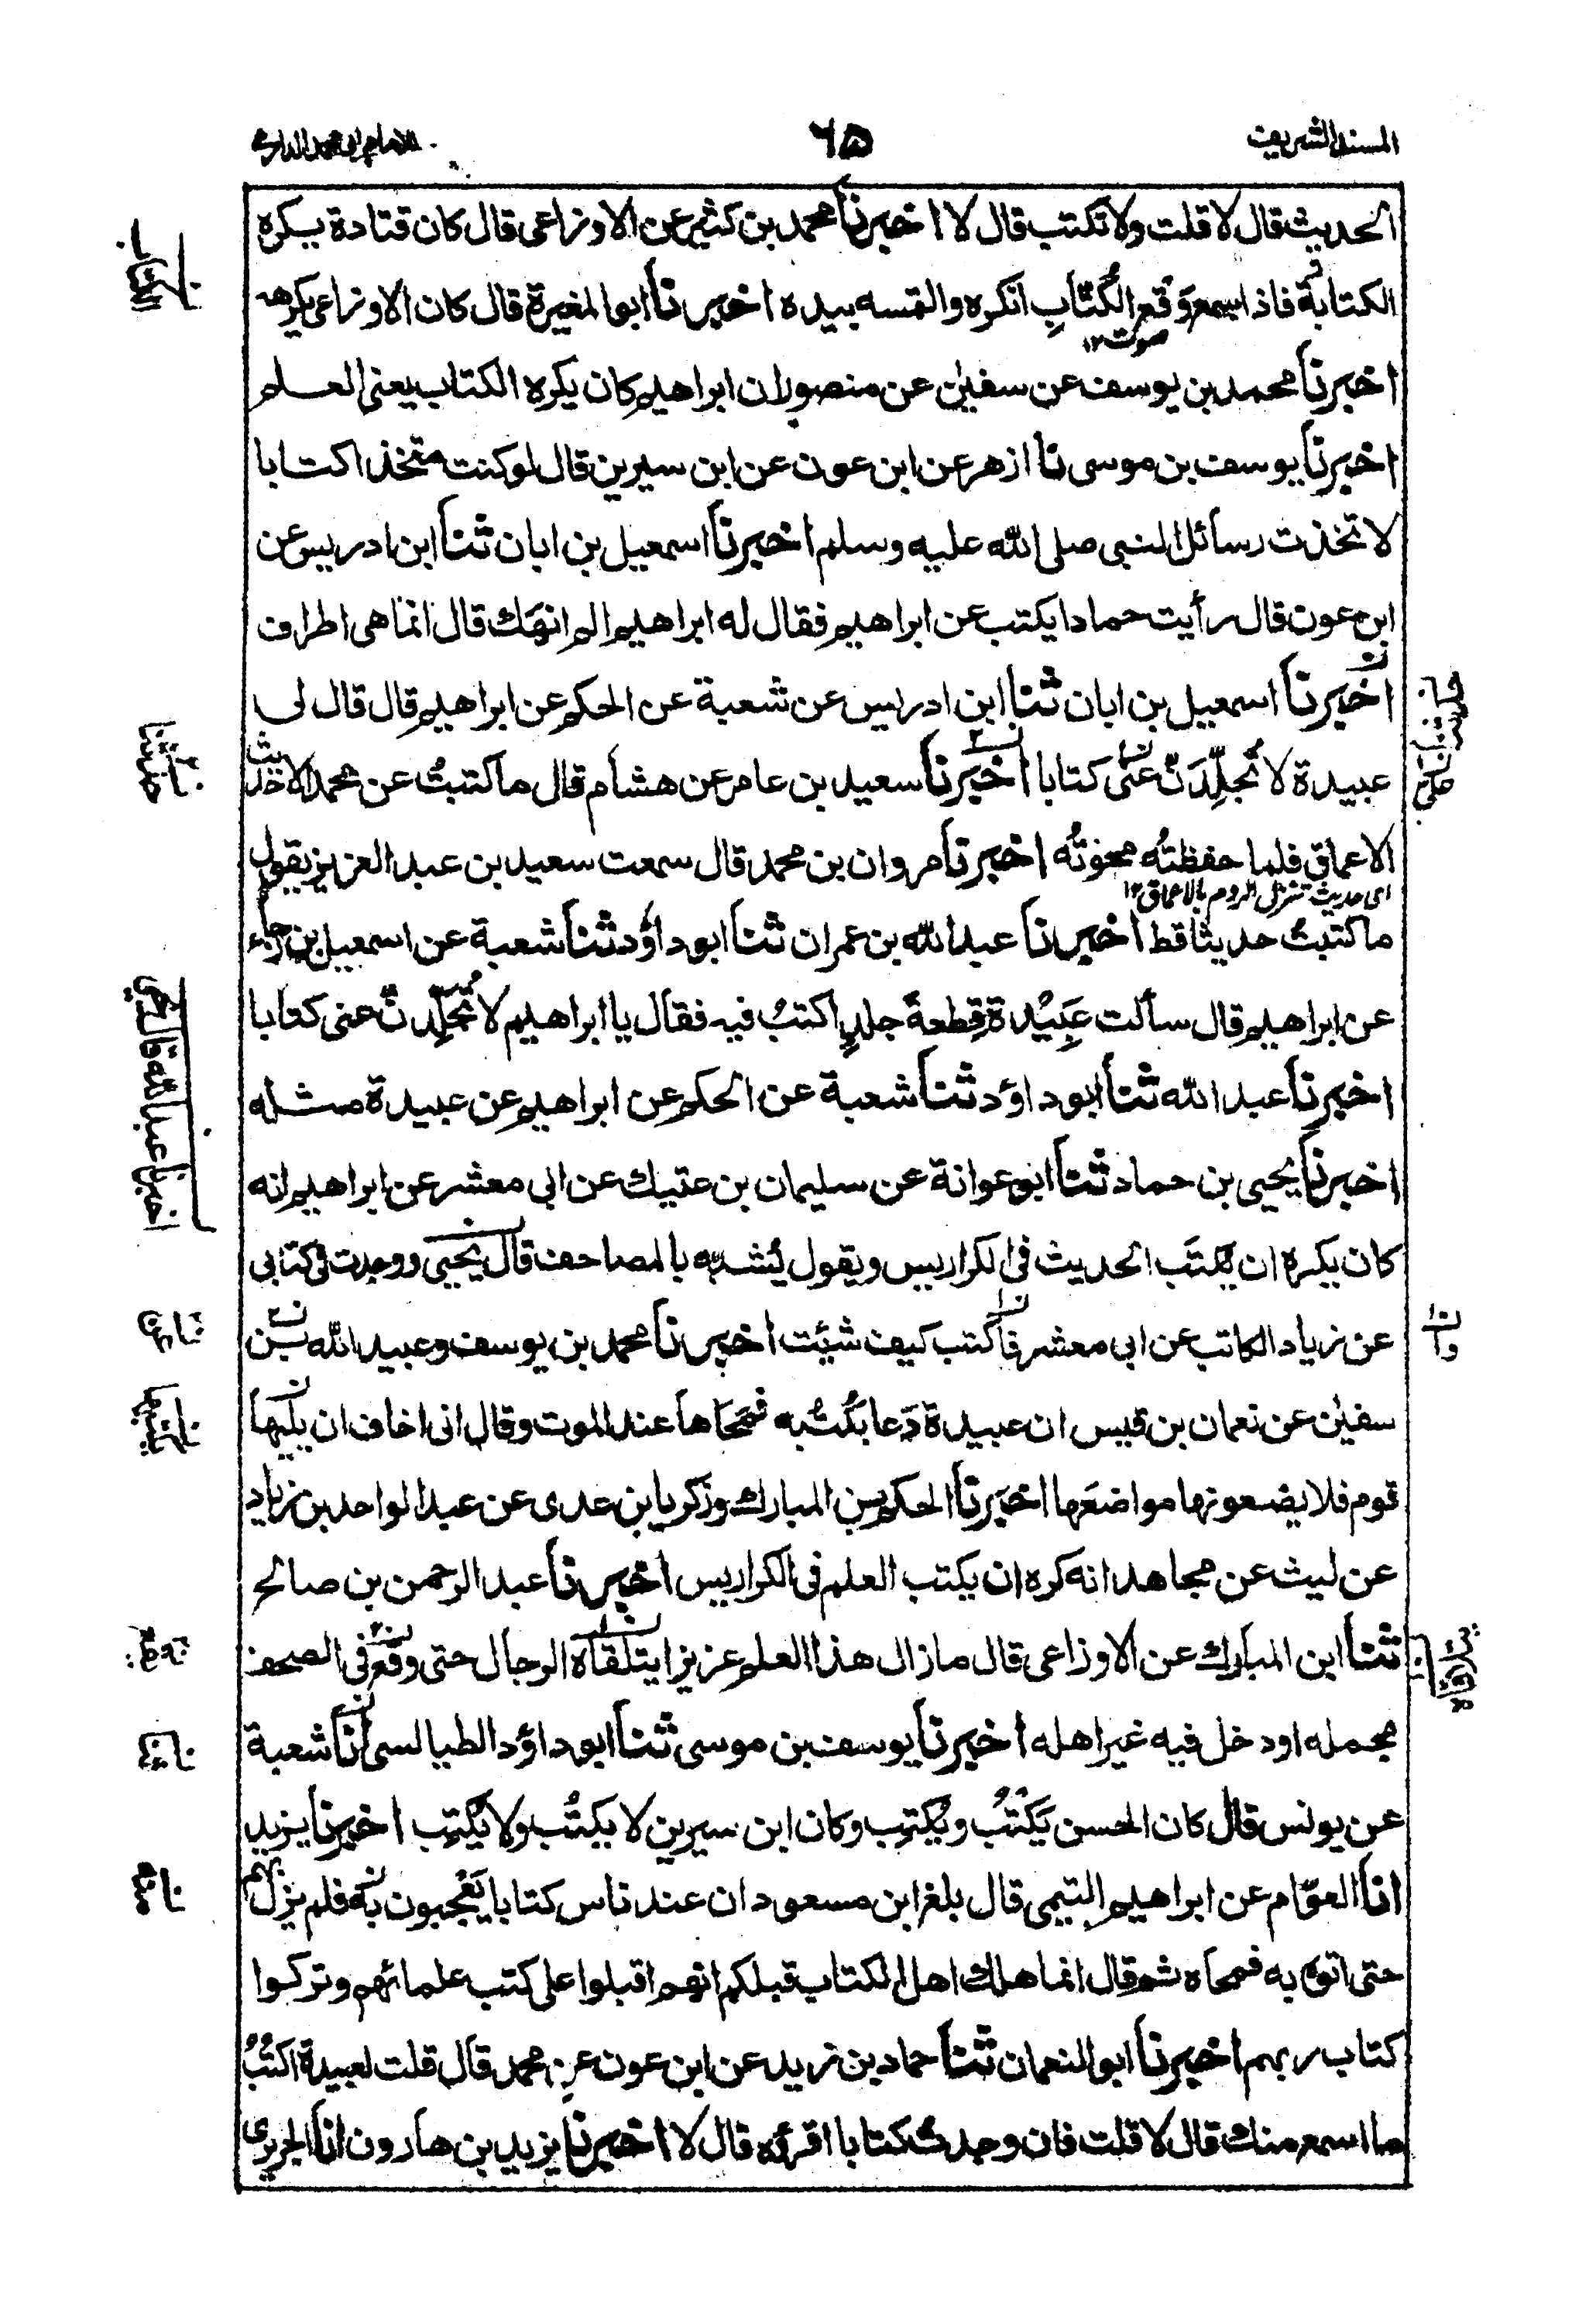 المسند الشريف
٦٥
للامام ابى محمد الدارمى
الحديث قال لا قلت ولا تكتب قال لا اخبرنا محمد بن كثير عن الاوزاعى قال كان قتادة يكره
الكتابة فاذا سمع وَقْع الكُتّابِ انكره والتمسه بيده اخبرنا ابو المغيرة قال كان الاوزاعى يكرهه
صوت ١٢
اخبرنا محمد بن يوسف عن سفيٰن عن منصور ان ابراهيم كان يكره الكتاب يعنى العلم
اخبرنا يوسف بن موسى نا ازهر عن ابن عون عن ابن سيرين قال لو كنت متخذا كتابا
لاتخذت رسائل النبى صلى الله عليه وسلم اخبرنا اسمعيل بن ابان ثنا ابن ادريس عن
ابن عون قال رأيت حمادا يكتب عن ابراهيم فقال له ابراهيم الم انهَك قال انما هى اطراف
اخبرنا اسمعيل بن ابان ثنا ابن ادريس عن شعبة عن الحكم عن ابراهيم قال قال لى
عبيدة لا تُجلِّدَنّ عنى كتابا اخبرنا سعيد بن عامر عن هشام قال ما كتبتُ عن محمد الا حديث
الاعماق فلما حفظتُه محوتُه اخبرنا مروان بن محمد قال سمعت سعيد بن عبد العزيز يقول
اى حديث تنزل الروم بالاعماق ١٢
ما كتبتُ حديثا قط اخبرنا عبد الله بن عمران ثنا ابو داؤد ثنا شعبة عن اسمعيل بن رجاء
عن ابراهيم قال سألت عَبِيْدة قِطعةَ جلدٍ اكتبُ فيه فقال يا ابراهيم لا تُجَلِّدنّ عنى كتابا
اخبرنا عبد الله ثنا ابو داؤد ثنا شعبة عن الحكم عن ابراهيم عن عبيدة مثله
اخبرنا يحيى بن حماد ثنا ابو عوانة عن سليمان بن عتيك عن ابى معشر عن ابراهيم انه
كان يكره ان يُكتَب الحديث فى الكراريس ويقول يُشَبَّه بالمصاحف قال يحيى ووجدت فى كتابى
عن زياد الكاتب عن ابى معشر فاكتب كيف شئت اخبرنا محمد بن يوسف وعبيد الله بن
سفيٰن عن نعمان بن قيس ان عبيدة دَعا بكُتُبه فمَحَاها عند الموت وقال انى اخاف ان يليها
قوم فلا يضعونها مواضعَها اخبرنا الحكم بن المبارك وزكريا بن عدى عن عبد الواحد بن زياد
عن ليث عن مجاهد انه كره ان يكتب العلم فى الكراريس اخبرنا عبد الرحمن بن صالح
ثنا ابن المبارك عن الاوزاعى قال ما زال هذا العلم عزيزا يتلقاه الرجال حتى وقع فى الصحف
مجمله او دخل فيه غير اهله اخبرنا يوسف بن موسى ثنا ابو داؤد الطيالسى انا شعبة
عن يونس قال كان الحسن يَكْتُبُ ويُكْتِب وكان ابن سيرين لا يكتُب ولا يُكْتِب اخبرنا يزيد
انا العوّام عن ابراهيم التيمى قال بلغ ابن مسعود ان عند ناس كتابا يَعْجبون به فلم يزل بهم
حتى اتوه به فمحاه ثم قال انما هلك اهل الكتاب قبلكم انهم اقبلوا على كتب علمائهم وتركوا
كتاب ربهم اخبرنا ابو النعمان ثنا حماد بن زيد عن ابن عون عن محمد قال قلت لعبيدة اكتُبُ
ما اسمع منك قال لا قلت فان وجدتُ كتابا اقرؤه قال لا اخبرنا يزيد بن هارون انا الجريرى
حدثنا
اخبرنا عبد الله قال